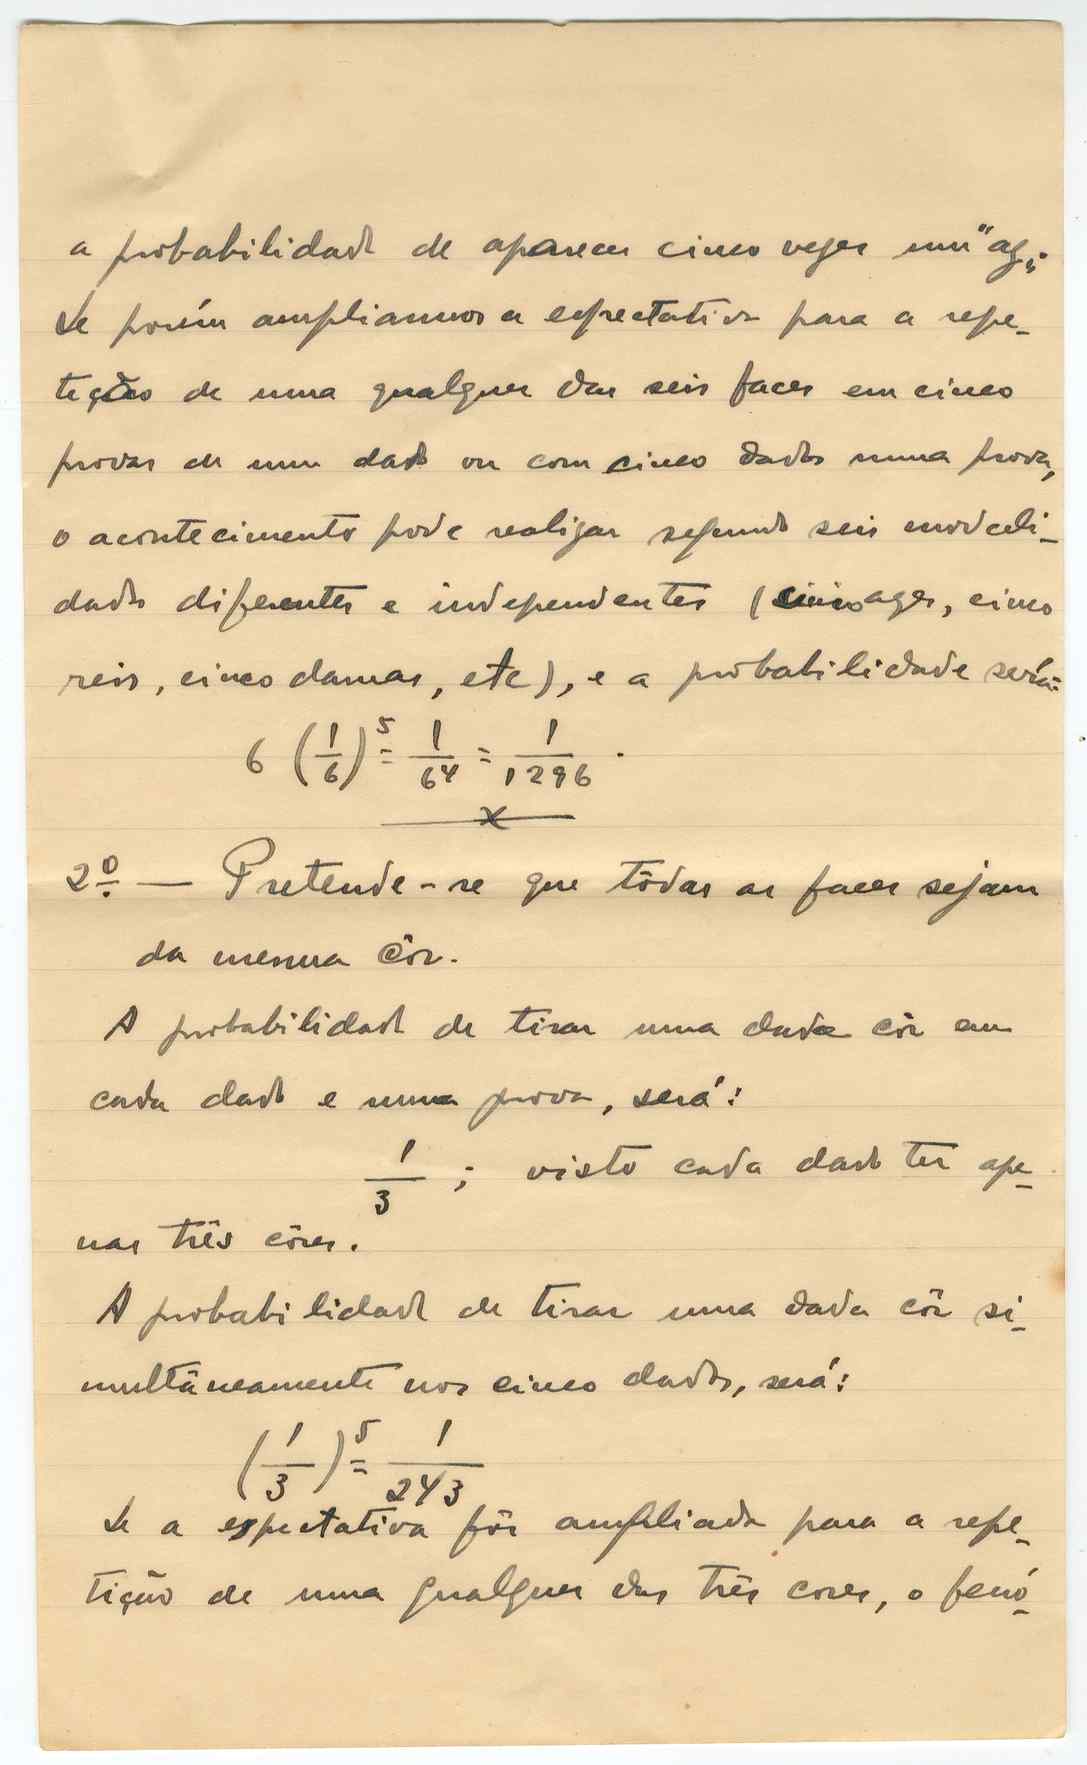 a probabilidade de aparecer cinco vezes um "az".
Se porém ampliarmos a espectativa para a repe-
tição de uma qualquer das seis faces em cinco
provas de um dado ou com cinco dados numa prova,
o acontecimento pode realizar segundo seis modali-
dades diferentes e independentes (cinco azes, cinco
reis, cinco damas, etc), e a probabilidade será:
6 (1/6)^5 = 1/6^4 = 1/1296 .
x
2º — Pretende-se que tôdas as faces sejam
da mesma côr.
A probabilidade de tirar uma dada côr em
cada dado e numa prova, será:
1/3 ; visto cada dado ter ape-
nas três côres.
A probabilidade de tirar uma dada côr si-
multâneamente nos cinco dados, será:
(1/3)^5 = 1/243
Se a espectativa fôr ampliada para a repe-
tição de uma qualquer das três cores, o fenó-